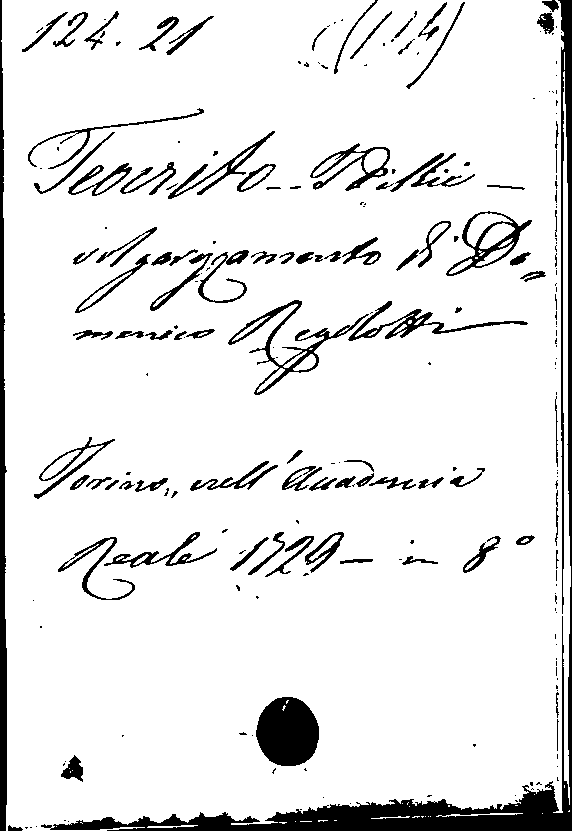 124. 21
Teocrito -- Idillii —
volgarizzamento di Do=
menico Regolotti
Torino,, nell' Accademia
Reale 1729 — in 8°